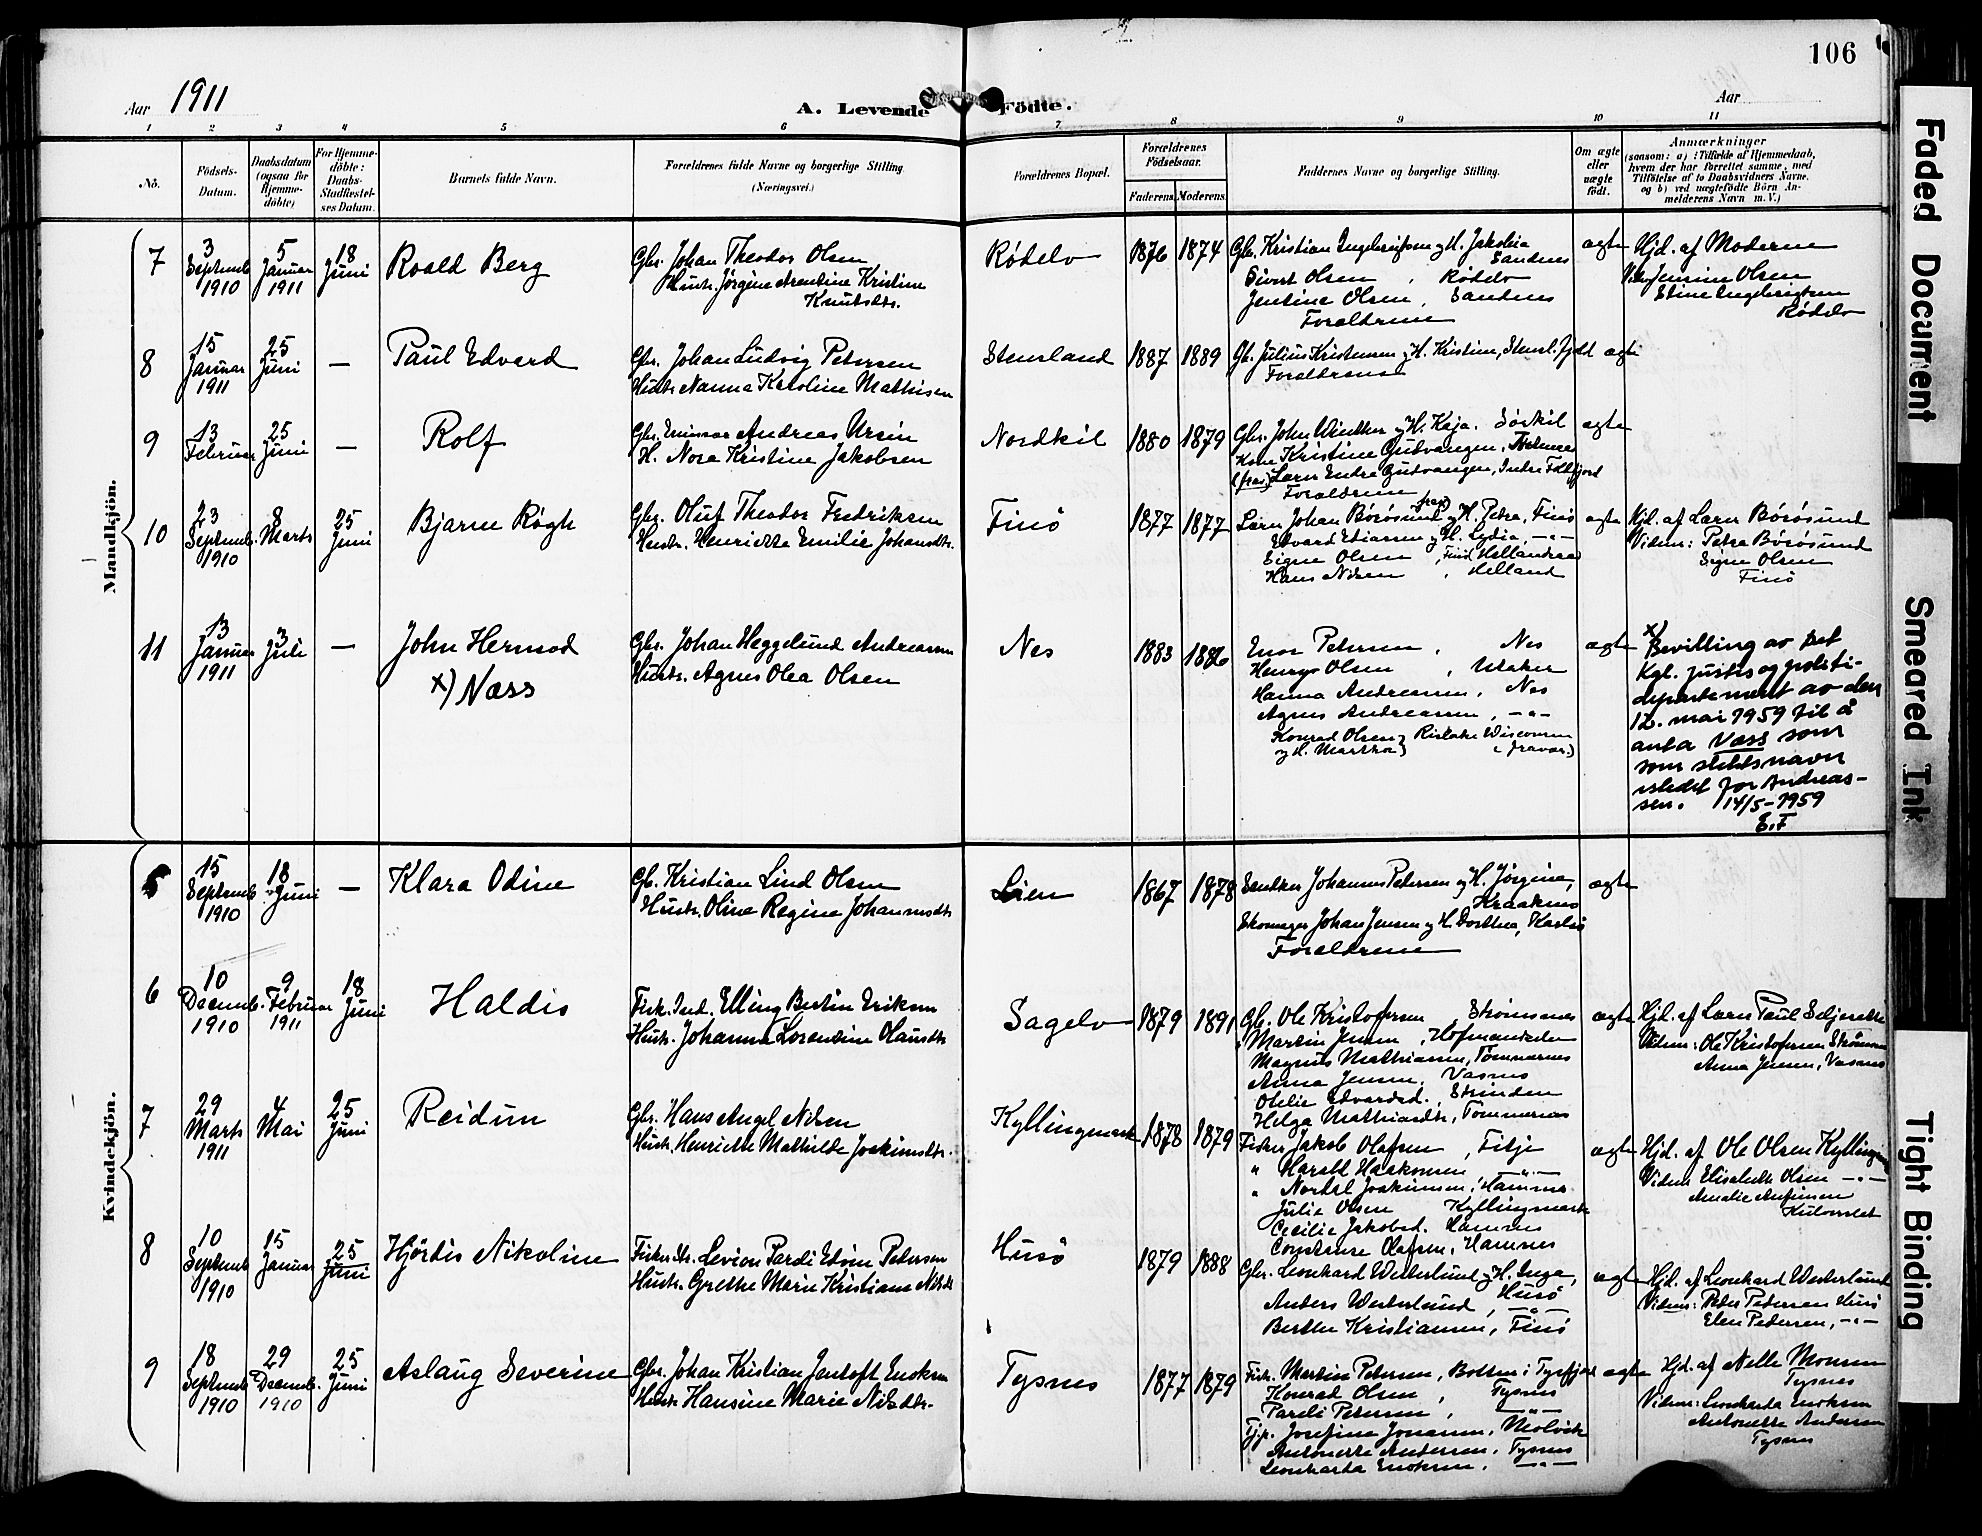 106
Aar 1911
A. Levende Födte.
Aar
1 2 3 4 5 6 7 8 9 10 11
No.
Födsels-
Datum.
Daabsdatum
(ogsaa for
Hjemme-
döbte)
For Hjemme-
döbte:
Daabs-
Stadfæstel-
ses Datum.
Barnets fulde Navn.
Forældrenes fulde Navne og borgerlige Stilling
(Næringsvei.)
Forældrenes Bopæl.
Forældrenes
Födselsaar.
Faderens. Moderens.
Faddernes Navne og borgerlige Stilling.
Om ægte
eller
uægte
født.
Anmærkninger
(saasom: a) i Tilfælde af Hjemmedaab,
hvem der har forrettet samme, med
Tilföielse af to Daabsvidners Navne,
og b) ved uægtefödte Börn An-
melderens Navn m. V.)
Mandkjön.
7
3
Septemb
1910
5
Januar
1911
18
Juni
Roald Berg
Gbr. Johan Theodor Olsen
Hustr. Jörgine Arentine Kristine
Knutsdtr.
Rödelv
1876 1874
Gbr. Kristian Engebrigtsen og H. Jakobia
Sandnes
Sivert Olsen, Rödelv
Jentine Olsen, Sandnes
Forældrene
ægte
Hjd. af Moderen
Vidn. Jensine Olsen
Stine Engebrigtsen
Rödelv
8
15
Januar
1911
25
Juni
—
Paul Edvard
Gbr. Johan Ludvig Petersen
Hustr. Nanna Karoline Mathisen
Stensland
1887 1889
Gb. Julius Kristensen og H. Kristine, Stensl. Fjeld
Forældrene
ægte
9
13
Februar
25
Juni
—
Rolf
Gbr. Andreas Ursin
H. Nora Kristine Jakobsen
Nordkil
1880 1879
Gbr. John Winther og H. Kaja. Sörkil
Kristine Gudvangen,
(frav) Lærer Endre Gudvangen, Indre Foldfjord
Forældrene
ægte
10
23
Septemb.
1910
8
Marts
25
Juni
Bjarne Rögh
Gbr. Oluf Theodor Fredriksen
Hustr. Henriette Emilie Johansdtr.
Finö
1877 1877
frav
Lærer Johan Börösund og H. Petra, Finö
Edvard Ediassen og H. Lydia, —"—
Signe Olsen, Finö
Hans Nilsen, Helland
ægte
Hjd. af Lærer Börösund
Vidner: Petra Börösund
Signe Olsen
Finö
11
13
Januar
1911
3
Juli
—
John Hermod
x) Næss
Gbr. Johan Heggelund Andreassen
Hustr. Agnes Olea Olsen
Nes
1883 1886
Enor Petersen, Nes
Henrys Olsen,
Hanna Andreassen, Nes
Agnes Andreassen, —"—
Konrad Olsen } Rislake Wisconsin
og H. Martha } (fravær.)
ægte
x)
Bevilling av det
Kgl. justis og politi-
departement av den
12. mai 1959 til å
anta Næss som
som slektsnavn
istedet for Andreas-
sen. 14/5-1959
E.F
Kvindekjön.
5
15
Septemb
1910
18
Juni
—
Klara Odine
Gb. Kristian Lind Olsen
Hustr. Oline Regine Johannesdtr
Lien
1867 1878
Snedker Johannes Petersen og H. Jörgine,
Kraaknes
Skomager Johan Jensen og H. Dorthea, Karlsö
Forældrene
ægte
6
10
Decemb.
1910
9
Februar
1911
18
Juni
Haldis
Fisk. Ind. Elling Bertin Eriksen
Hustr. Johanna Lorentine Olausdtr
Sagelv
1879 1891
Gb. Ole Kristofersen, Strömsnes
Martin Jensen,
Magnus Mathiassen, Tömmernes
Anna Jensen, Vasnes
Otelie Edvardsd., Strinden
Helga Mathiasdtr, Tömmernes
ægte
Hjd. af Lærer Paul Seljesæth
Vidner: Ole Kristofersen Strömsnes
Anna Jensen, Vasnes
7
29
Marts
1911
4
Mai
25
Juni
Reidun
Gbr. Hans Angel Nilsen
Hustr. Henriette Mathilde Joakimsdtr.
Kyllingmark
1878 1879
Fisker Jakob Olafsen, Fikje
" Harald Haakonsen, —"—
" Nordal Joakimsen, Hamnes
Julie Olsen Kyllingmark
Cecilie Jakobsd. Hamnes
Constanse Olafsen, Hamnes
ægte
Hjd. af Ole Olsen Kyllingm
Vidner Elisabeth Olsen —"—
Amalie
8
10
Septemb
1910
15
Januar
25
Juni
Hjördis Nikoline
Levion Pardi Edvin Petersen
Hustr. Grethe Marie Kristiane Nilsdtr
Husö
1879 1888
Gbr. Leonhard Westerlund og H. Inga,
Husö
Anders Westerlund, —"—
Berthe Kristiansen, Finö
ægte
Hjd. af Leonhard Westerlund
Vidner: Peder Pedersen Husö
Elen Pedersen, —"—
9
18
Septemb
1910
29
Decemb.
1910
25
Juni
Aslaug Severine
Gbr. Johan Kristian Jentoft Enoksen
Hustr. Hansine Marie Nilsdtr.
Tysnes
1877 1879
Fisk. Martin Petersen, Botten i Tysfjord
Konrad Olsen, Tysnes
Pareli Petersen, —"—
Tjp. Josefine Jonassen, Molvik
Antonette Andersen, Tysnes
Leonharda Enoksen, —"—
ægte
Hjd. af Nelle Monsen
Tysnes
Vidner: Leonharda Enoksen
Antonette Andersen
Tysnes
Faded Document
Smeared Ink
Tight Binding